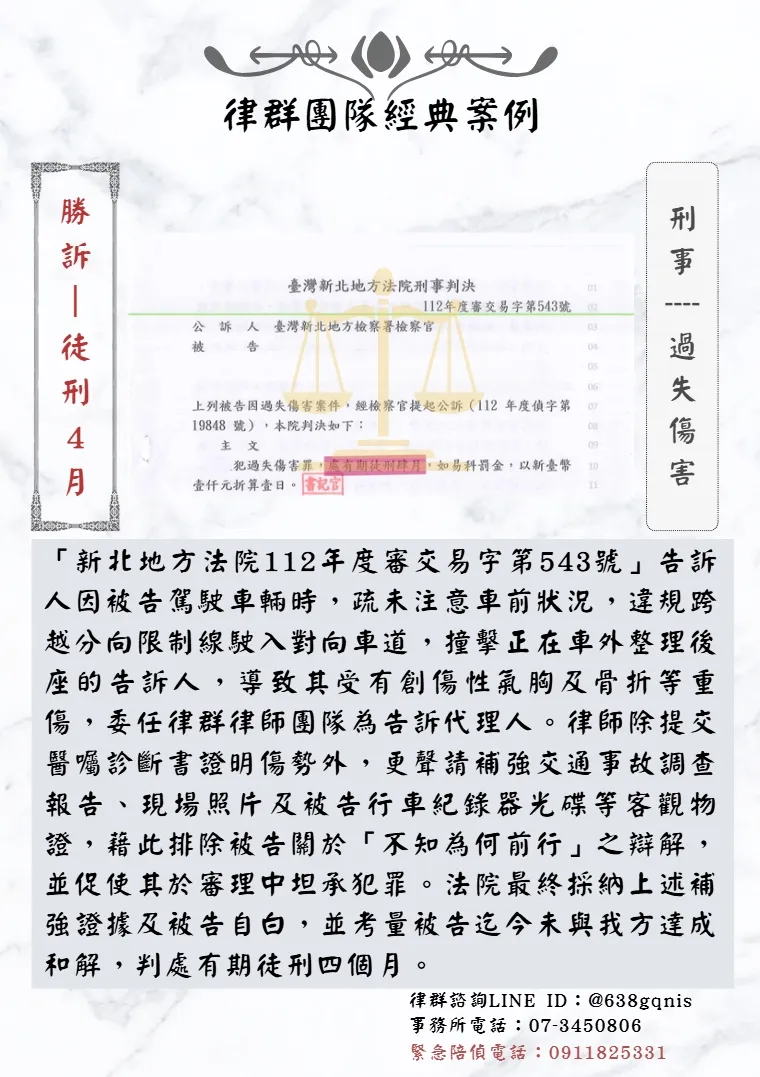 律群團隊經典案例
勝訴|徒刑4月
刑事----過失傷害
臺灣新北地方法院刑事判決
112年度審交易字第543號
公訴人 臺灣新北地方檢察署檢察官
被告
上列被告因過失傷害案件,經檢察官提起公訴(112 年度偵字第
19848 號),本院判決如下:
主文
犯過失傷害罪,處有期徒刑肆月,如易科罰金,以新臺幣
壹仟元折算壹日。
書記官
01
02
03
04
05
06
07
08
09
10
11
「新北地方法院112年度審交易字第543號」告訴
人因被告駕駛車輛時,疏未注意車前狀況,違規跨
越分向限制線駛入對向車道,撞擊正在車外整理後
座的告訴人,導致其受有創傷性氣胸及骨折等重
傷,委任律群律師團隊為告訴代理人。律師除提交
醫囑診斷書證明傷勢外,更聲請補強交通事故調查
報告、現場照片及被告行車紀錄器光碟等客觀物
證,藉此排除被告關於「不知為何前行」之辯解,
並促使其於審理中坦承犯罪。法院最終採納上述補
強證據及被告自白,並考量被告迄今未與我方達成
和解,判處有期徒刑四個月。
律群諮詢LINE ID:@638gqnis
事務所電話:07-3450806
緊急陪偵電話:0911825331